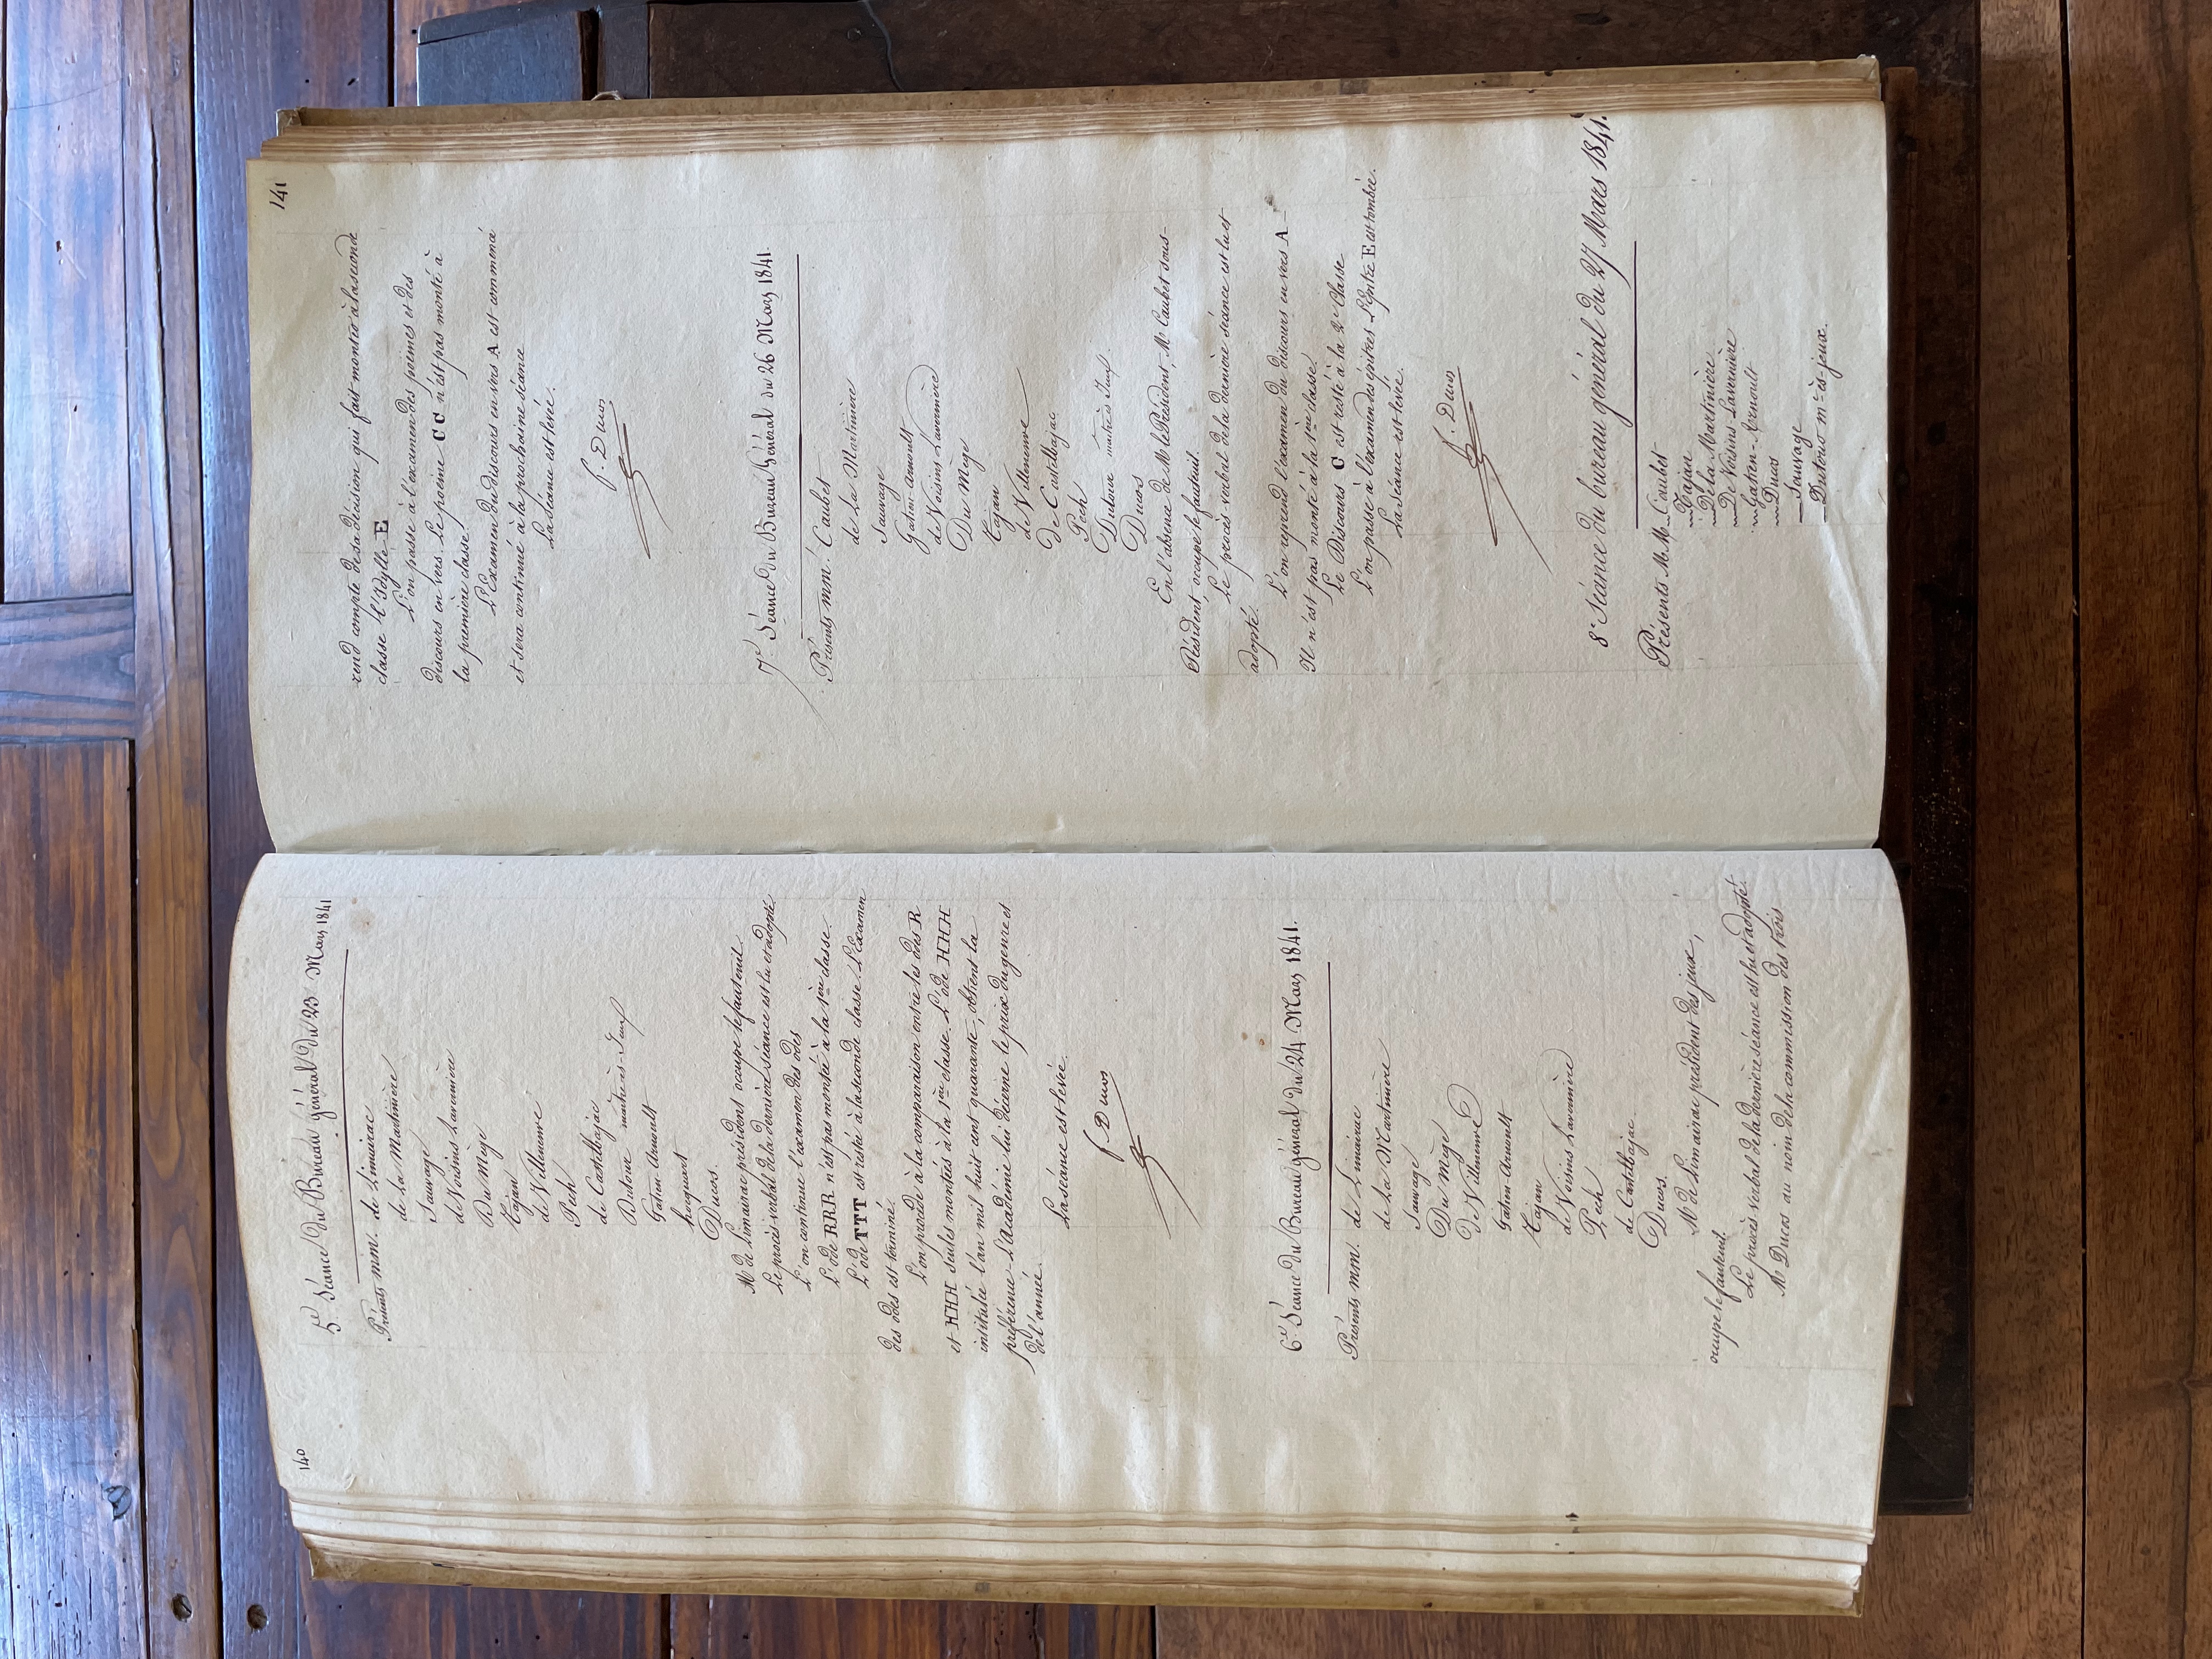 140
5e Séance du Bureau général du 23 Mars 1841
Présents mm. de Limairac
de La Martinière
Sauvage
de Voisins Lavernière
Du Mège
Tajan
de Villeneuve
Pech
de Castelbajac
Dutour maitre ès-Jeux
Gatien-Arnoult
hocquart
Ducos.
Mr de Limairac président occupe le fauteuil.
Le procès verbal de la dernière séance est lu et adopté.
L'on continue l'examen des odes
L'ode RRR n'est pas montée à la 1ère classe.
L'ode TTT est restée à la seconde classe. L'Examen
des odes est terminé.
L'on procède à la comparaison entre les odes R
et HHH seules montées à la 1ère classe. L'ode HHH
intitulée l'an mil huit cent quarante, obtient la
préférence. L'Académie lui décerne le prix du genre et
de l'année.
La séance est levée.
f. Ducos
6e Séance du Bureau général du 24 Mars 1841.
Présents mm. de Limairac
de La Martinière
Sauvage
Du Mège
de Villeneuve
Gatien-Arnoult
Tajan
de Voisins Lavernière
Pech
de Castelbajac
Ducos.
Mr de Limairac président des jeux,
occupe le fauteuil.
Le procès verbal de la dernière séance est lu et adopté.
Mr Ducos au nom de la commission des trois
141
rend compte de sa décision qui fait monter à la seconde
classe l'Idylle E
L'on passe à l'examen des poëmes et des
discours en vers. Le poëme CC n'est pas monté à
la première classe.
L'Examen du discours en vers A est commencé
et sera continué à la prochaine séance
La séance est levée.
f. Ducos
7e Séance du Bureau Général du 26 Mars 1841.
Présents mm. Caubet
de La Martinière
Sauvage
Gatien-Arnoult
de Voisins Lavernière
Du Mège
Tajan
de Villeneuve
De Castelbajac
Pech
Dutour maitre ès Jeux
Ducos
En l'absence de Mr le Président, Mr Caubet sous-
Président, occupe le fauteuil.
Le procès-verbal de la dernière séance est lu et
adopté.
L'on reprend l'examen du discours en vers A-
Il n'est pas monté à la 1ère classe.
Le Discours C est resté à la 2e Classe
L'on passe à l'examen des épitres. L'épitre E est tombée.
La séance est levée.
f. Ducos
8e Séance du bureau général du 27 Mars 1841.
Présents MM. Caubet
Tajan
De la Martinière
De Voisins Lavernière
Gatien-Arnoult
Ducos
Sauvage
Dutour me-ès-jeux.